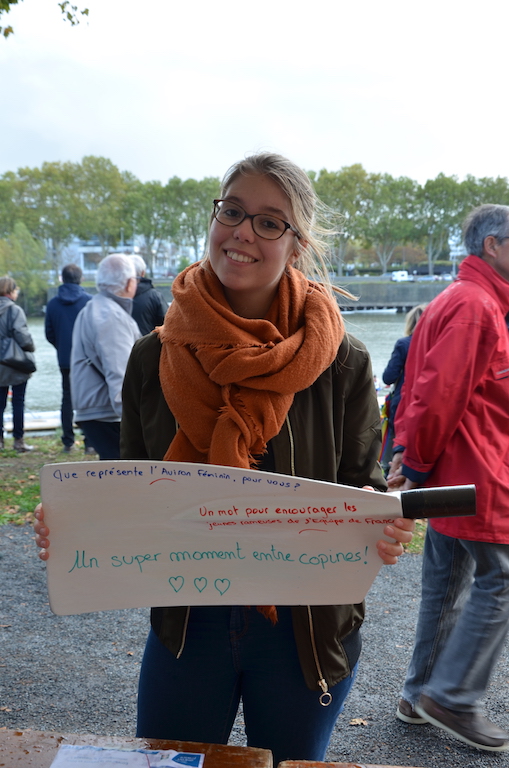 Que représente l'Aviron Féminin, pour vous?
Un mot pour encourager les
jeunes rameuses de l'Equipe de France
Un super moment entre copines!
♡ ♡ ♡